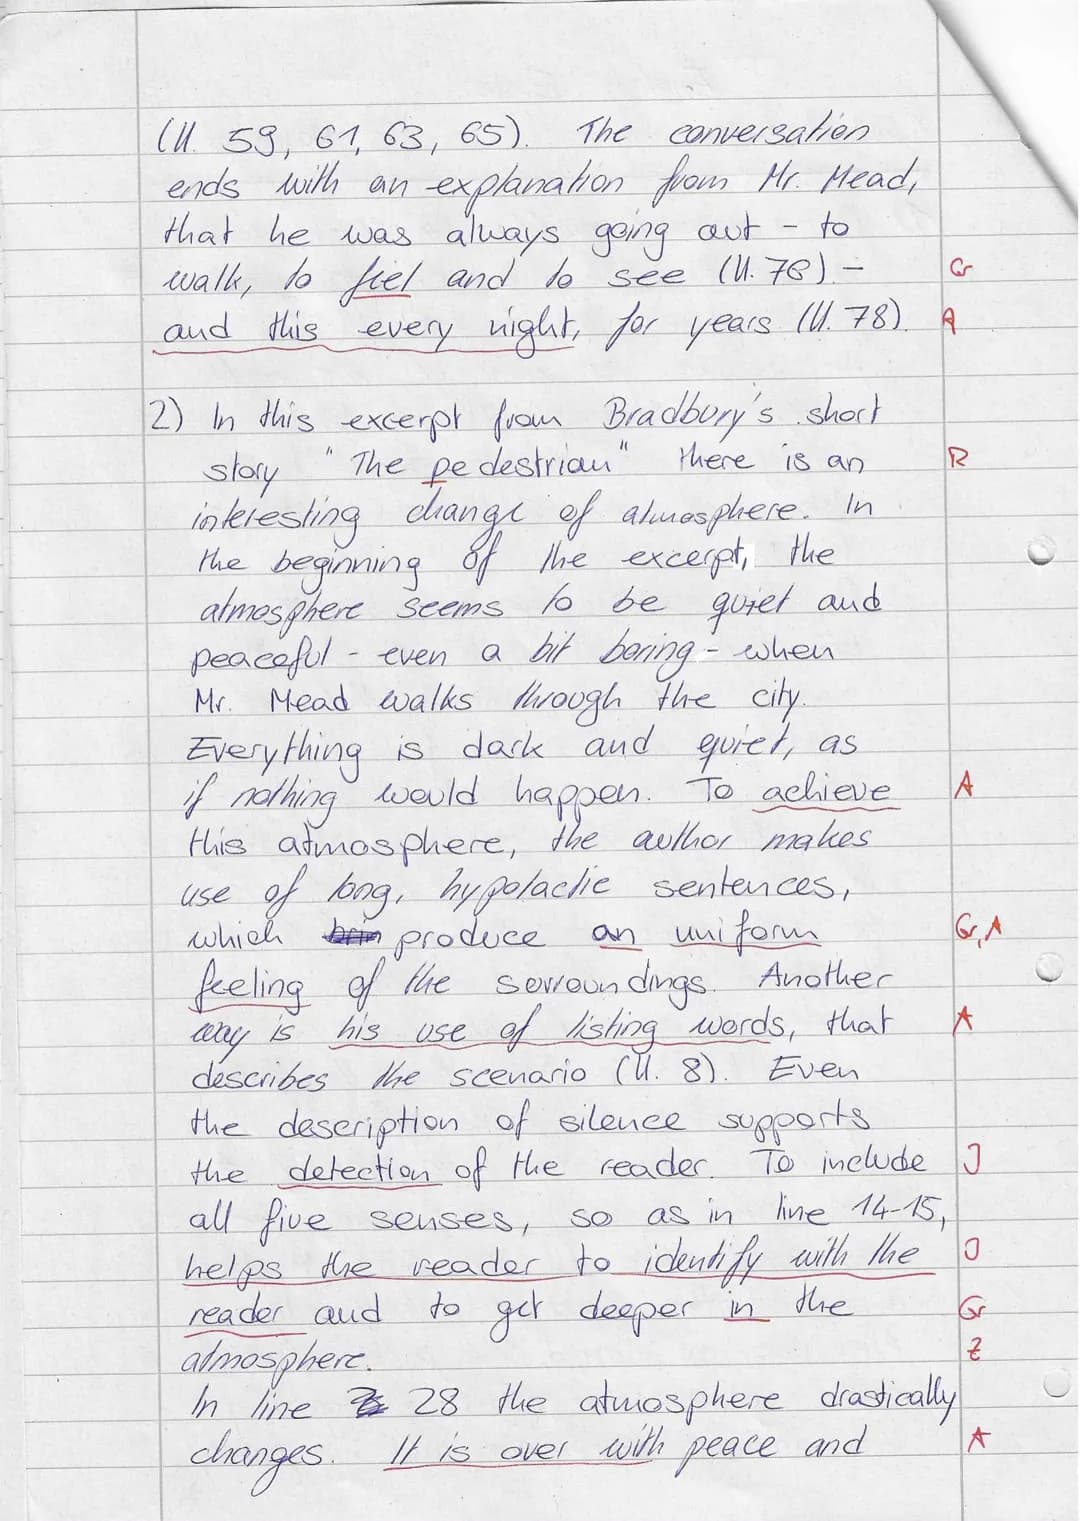 (ll. 59, 61, 63, 65). The conversation
ends with an explanation from Mr. Mead,
that he was always going out - to
walk, to fiel and to see (ll. 78) - Gr
and this every night, for years (ll. 78). A
2) In this excerpt from Bradbury's short
story "The pedestrian" there is an R
interesting change of atmosphere. In
the beginning of the excerpt, the
atmosphere seems to be quiet and
peaceful - even a bit boring - when
Mr. Mead walks through the city.
Everything is dark and quiet, as
if nothing would happen. To achieve A
this atmosphere, the author makes
use of long, hypotactic sentences,
which produce an uniform Gr, A
feeling of the sorroundings. Another
way is his use of listing words, that A
describes the scenario (ll. 8). Even
the description of silence supports
the detection of the reader. To include J
all five senses, so as in line 14-15,
helps the reader to identify with the J
reader and to get deeper in the Gr
atmosphere. Z
In line 28 the atmosphere drastically
changes. It is over with peace and A